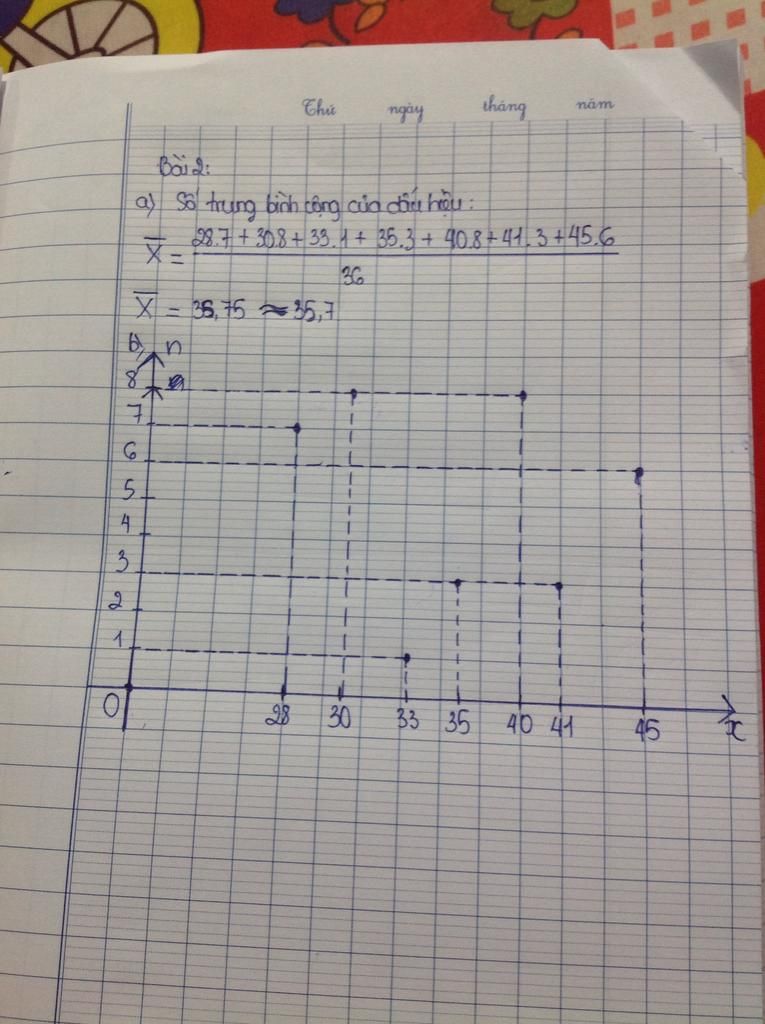 Thứ ngày tháng năm
Bài 2:
a) Số trung bình cộng của dấu hiệu:
X̄ = 28.7 + 30.8 + 33.1 + 35.3 + 40.8 + 41.3 + 45.6
36
X̄ = 35,75 ≈ 35,7
b) n
8
7
6
5
4
3
2
1
0 28 30 33 35 40 41 45 x